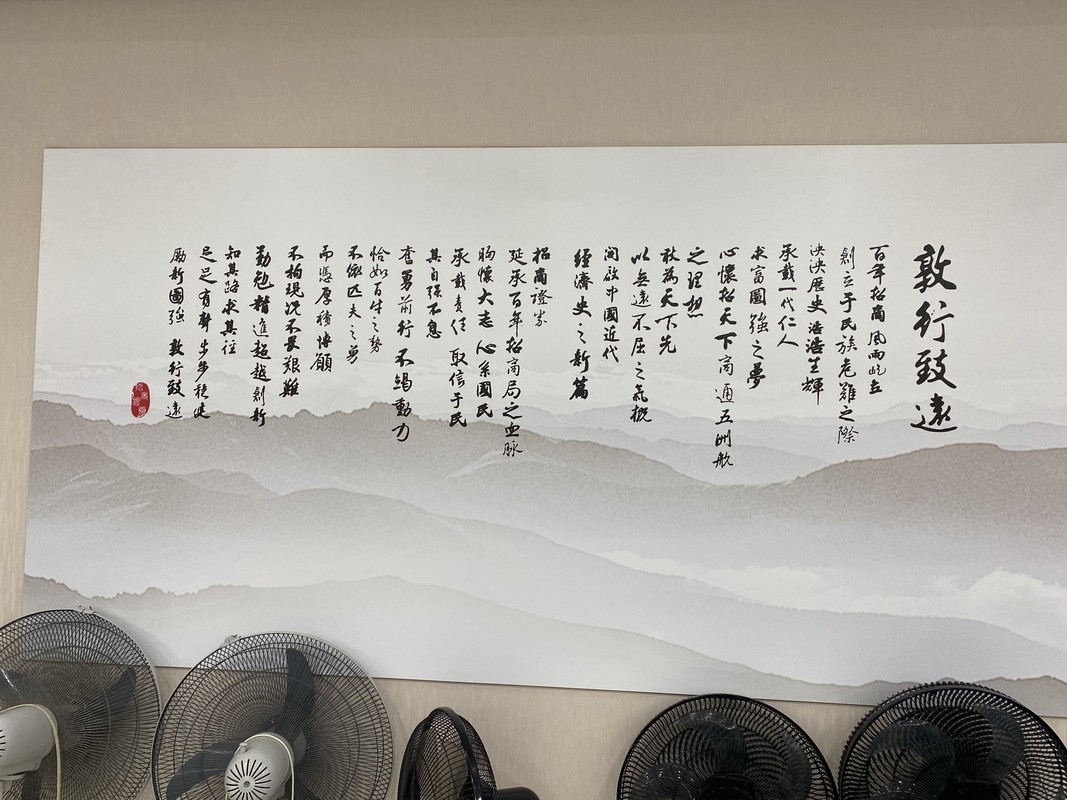 敦行致遠
百年招商 風雨屹立
創立于民族危難之際
泱泱歷史 浩浩生輝
承載一代仁人
求富國強之夢
心懷拓天下商 通五洲航
之理想
敢為天下先
以無遠不屈之氣概
開啟中國近代
經濟史之新篇
招商證券
延承百年招商局之血脈
胸懷大志 心系國民
承載責任 取信于民
其自強不息
奮勇前行 不竭動力
恰如百牛之勢
不倣匹夫之勇
而憑厚積博願
不拘現況不畏艱難
勤勉精進超越創新
知其路求其往
足足有聲 步步穩健
勵新國強 敦行致遠